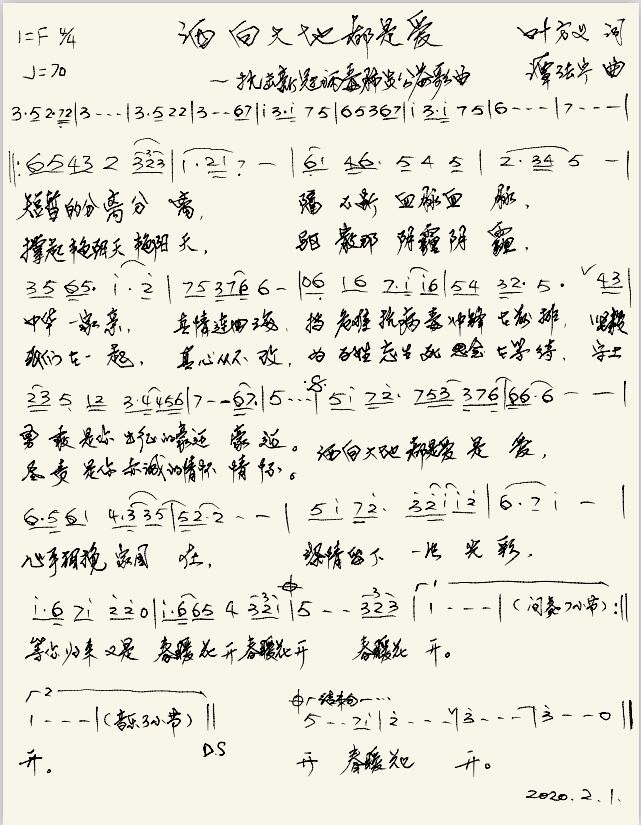 1=F 4/4 洒向大地都是爱 叶方义 词
♩=70 —抗击新冠病毒肺炎公益歌曲 曲
3·5272|3---|3·522|3--67|i3·i75|65367|i3·i75|6---|7---|
‖:65432323|1·217-|6146·545|2·345-|
短暂的分离分离, 隔不断血脉血脉,
撑起艳阳天艳阳天, 驱散那阴霾阴霾,
3565·i·2|753766-|06167·ii6|5432·5·√43|
中华一家亲, 真情连四海, 挡危难抗病毒冲锋在前排,
我们在一起, 真心从不改, 为百姓忘生死
235123·4456|7--67·|5---|5i72·753376|66·6--|
勇敢是你出征的豪迈豪迈。 洒向大地都是爱是爱,
尽责是你赤诚的情怀情怀。
6·5614·335|52·2--|5i7232ii2|6·7i-|
心手相挽家国在, 深情留下一片光彩,
i·67i220|i·665432i|5--323|1---|(间奏7小节):‖
等你归来又是春暖花开春暖花开 春暖花开。
2 结束句
1---|(音乐3小节)‖ 5--7i|2---|3---|3--0‖
D.S
开。 开 春暖花 开。
2020.2.1.